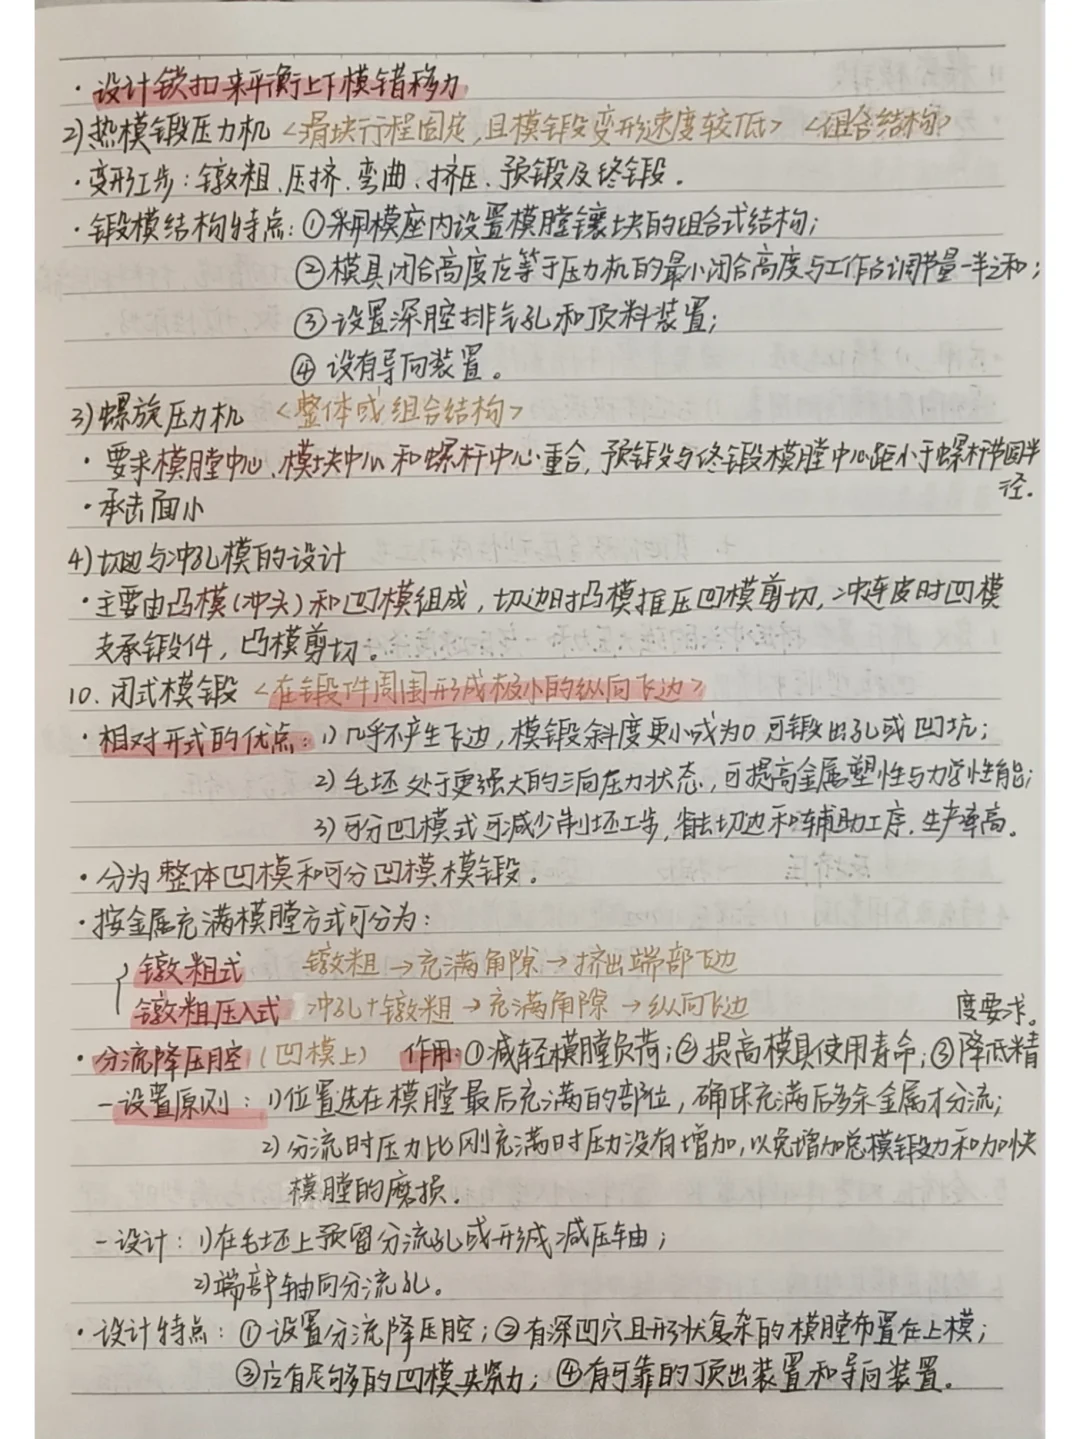 ·设计锁扣来平衡上下模错移力
2)热模锻压力机 <滑块行程固定,且模锻变形速度较低> <组合结构>
·变形工步:镦粗、压挤、弯曲、挤压、预锻及终锻。
·锻模结构特点:①采用模座内设置模膛镶块的组合式结构;
②模具闭合高度应等于压力机的最小闭合高度与工作台调节量一半之和;
③设置深腔排气孔和顶料装置;
④设有导向装置。
3)螺旋压力机 <整体或组合结构>
·要求模膛中心、模块中心和螺杆中心重合,预锻与终锻模膛中心距小于螺杆节圆半
径.
·承击面小
4)切边与冲孔模的设计
·主要由凸模(冲头)和凹模组成,切边时凸模推压凹模剪切,冲连皮时凹模
支承锻件,凸模剪切。
10.闭式模锻 <在锻件周围形成极小的纵向飞边>
·相对开式的优点:1)几乎不产生飞边,模锻斜度更小或为0 可锻出孔或凹坑;
2)毛坯处于更强大的三向压力状态,可提高金属塑性与力学性能;
3)可分凹模式可减少制坯工步,省去切边和辅助工序.生产率高。
·分为整体凹模和可分凹模模锻。
·按金属充满模膛方式可分为:
镦粗式 镦粗→充满角隙→挤出端部飞边
镦粗压入式 冲孔+镦粗→充满角隙→纵向飞边 度要求。
·分流降压腔(凹模上) 作用:①减轻模膛负荷;②提高模具使用寿命;③降低精
-设置原则:1)位置选在模膛最后充满的部位,确保充满后多余金属才分流;
2)分流时压力比刚充满时压力没有增加,以免增加总模锻力和加快
模膛的磨损.
-设计:1)在毛坯上预留分流孔或形成减压轴;
2)端部轴向分流孔。
·设计特点:①设置分流降压腔;②有深凹穴且形状复杂的模膛布置在上模;
③应有足够的凹模夹紧力;④有可靠的顶出装置和导向装置。